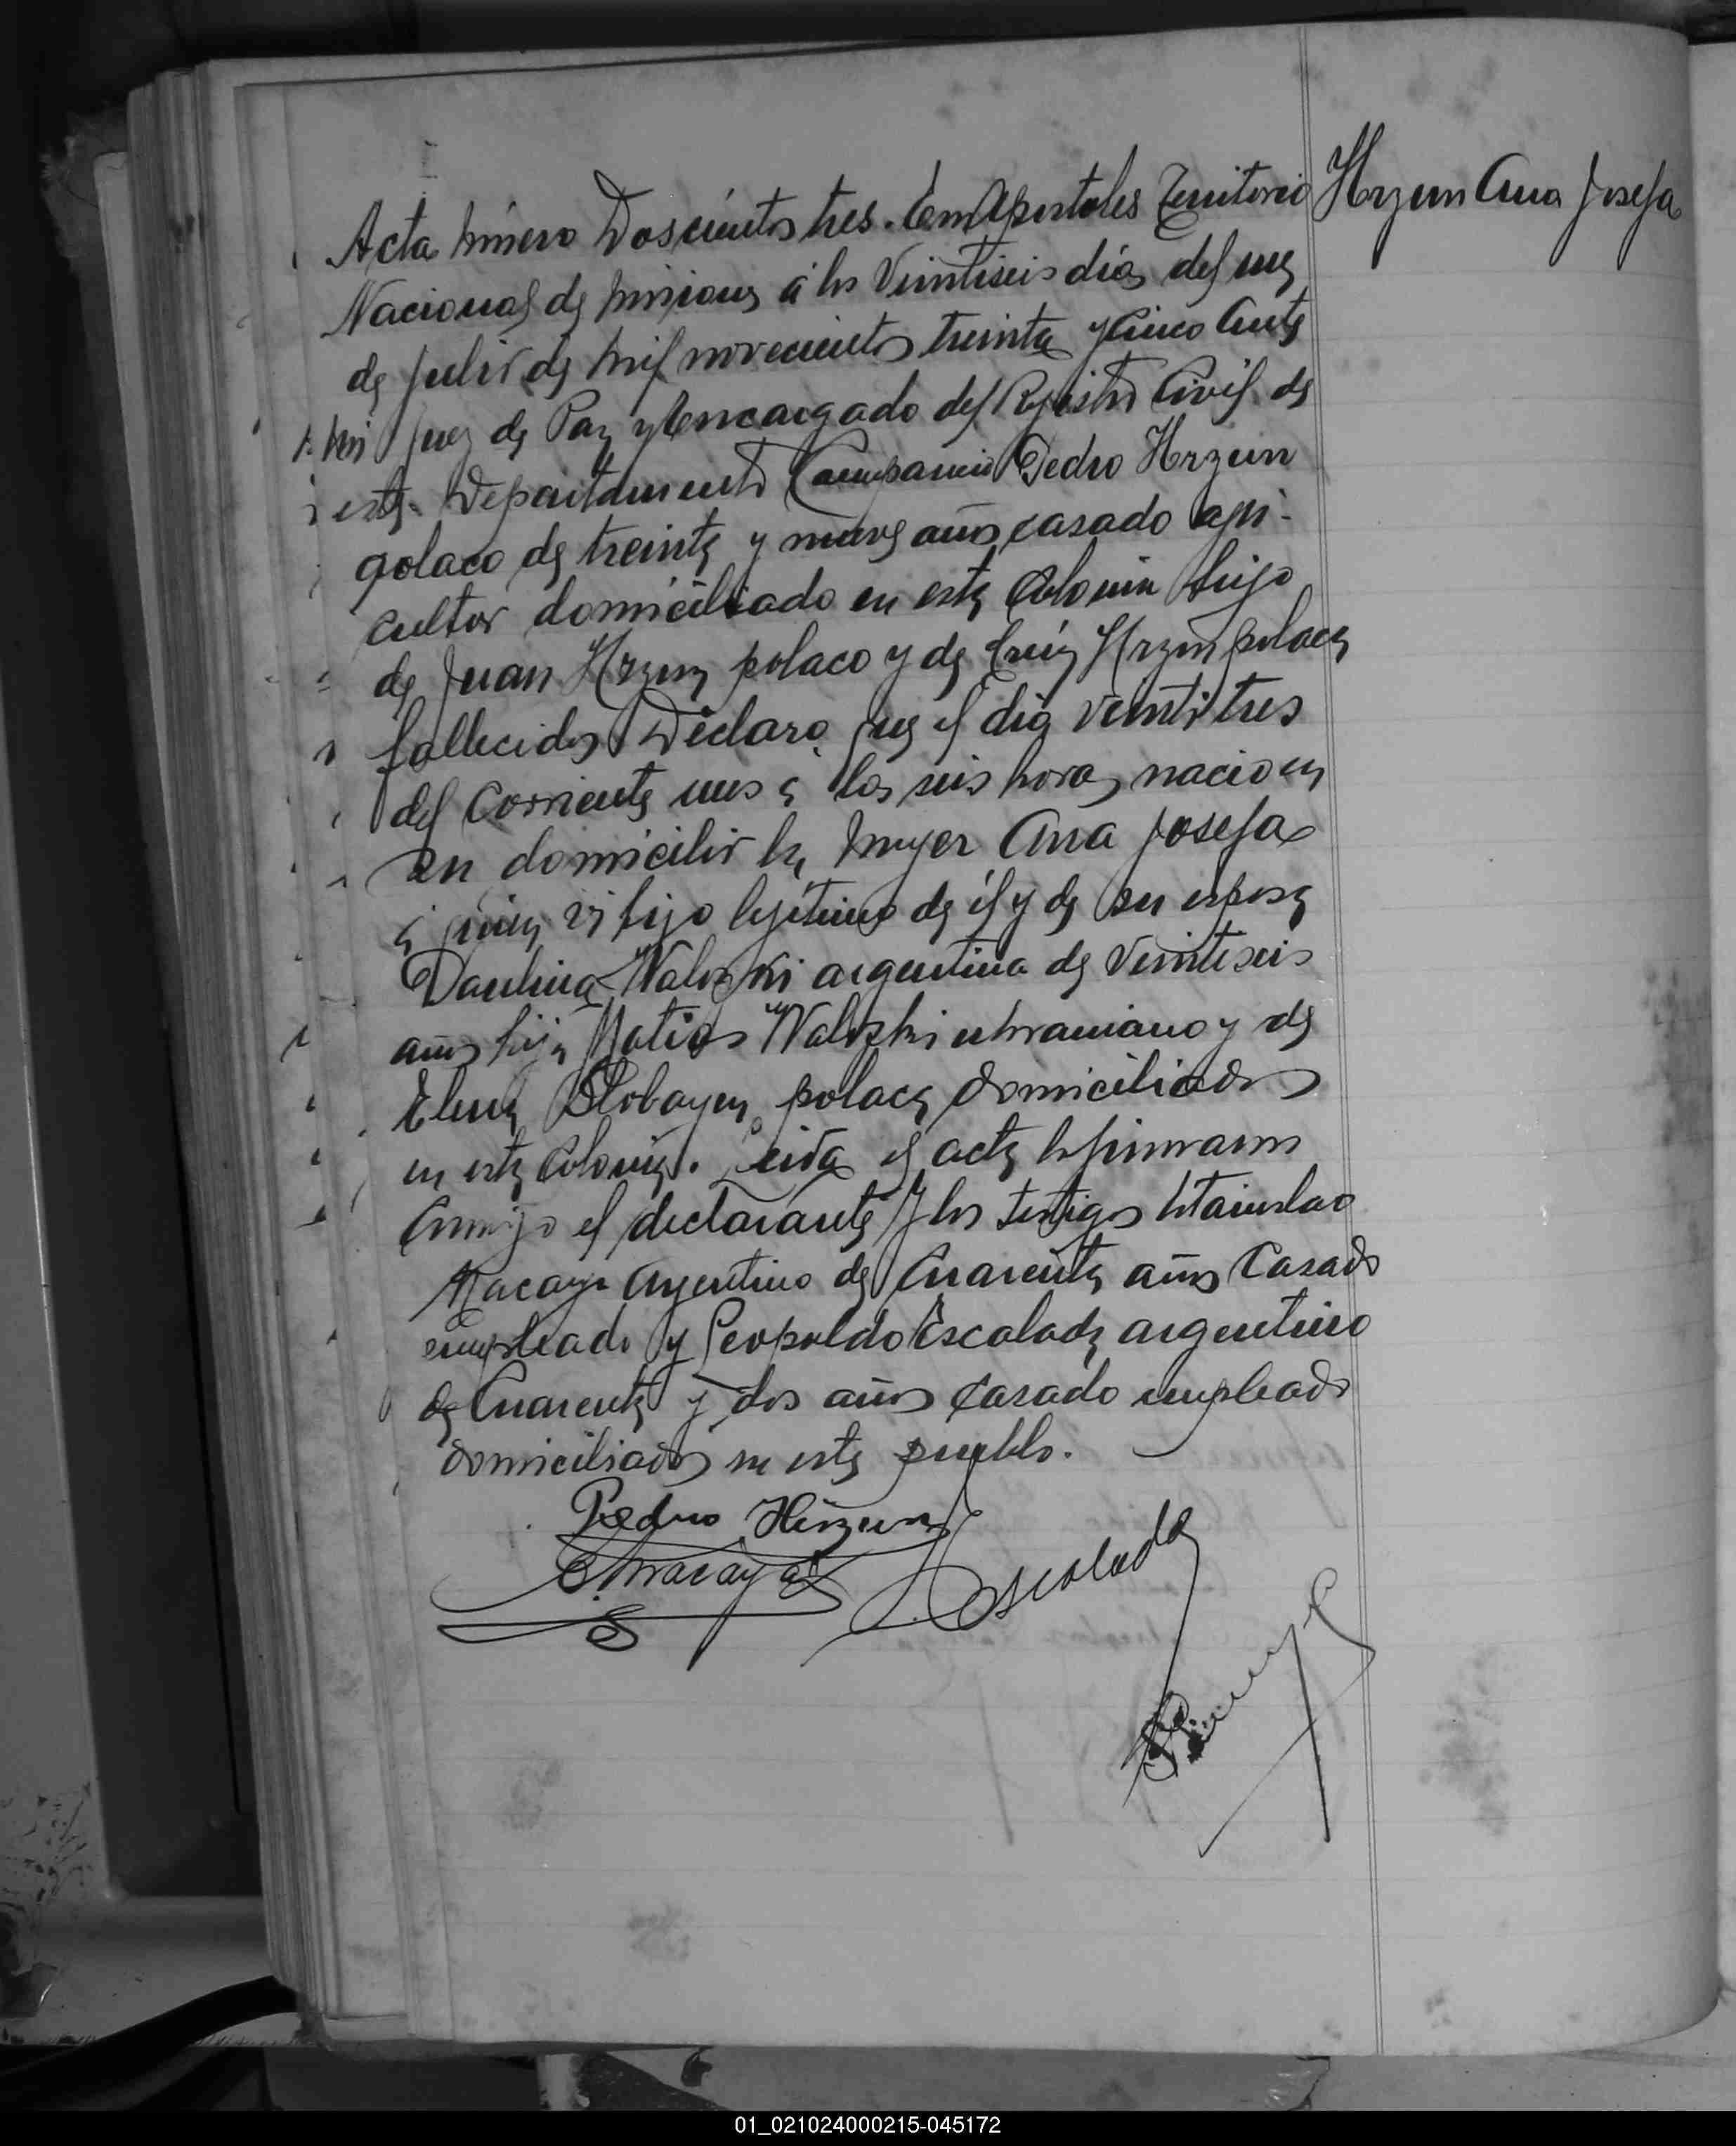 Hrzun Ana Josefa
Acta número Doscientos tres. En Apostoles Territorio
Nacional de Misiones á los Veintiseis dias del mes
de Julio de mil novecientos treinta y cinco Ante
mi Juez de Paz y Encargado del Registro Civil de
este Departamento Comparecio Pedro Hrzun
polaco de treinta y nueve años casado agri-
cultor domiciliado en esta Colonia hijo
de Juan Hrzun polaco y de Hrzun polaca
fallecidos Declaro que el dia veintitres
del Corriente mes á las seis horas nacio en
su domicilio la mujer Ana Josefa
á quien vi hijo legitimo de él y de su esposa
Paulina Waloski argentina de Veintiseis
años hija Matias Waloski ukraniano y de
Elena polaca domiciliados
en esta Colonia. Leida el acta la firmaron
Conmigo el declarante y los testigos Estanislao
Macaya Argentino de Cuarenta años Casado
empleado y Leopoldo Escalada argentino
de Cuarenta y dos años casado empleado
domiciliados en este pueblo.
Pedro Hirzun
E. Macaya
L. Escalada
01_021024000215-045172